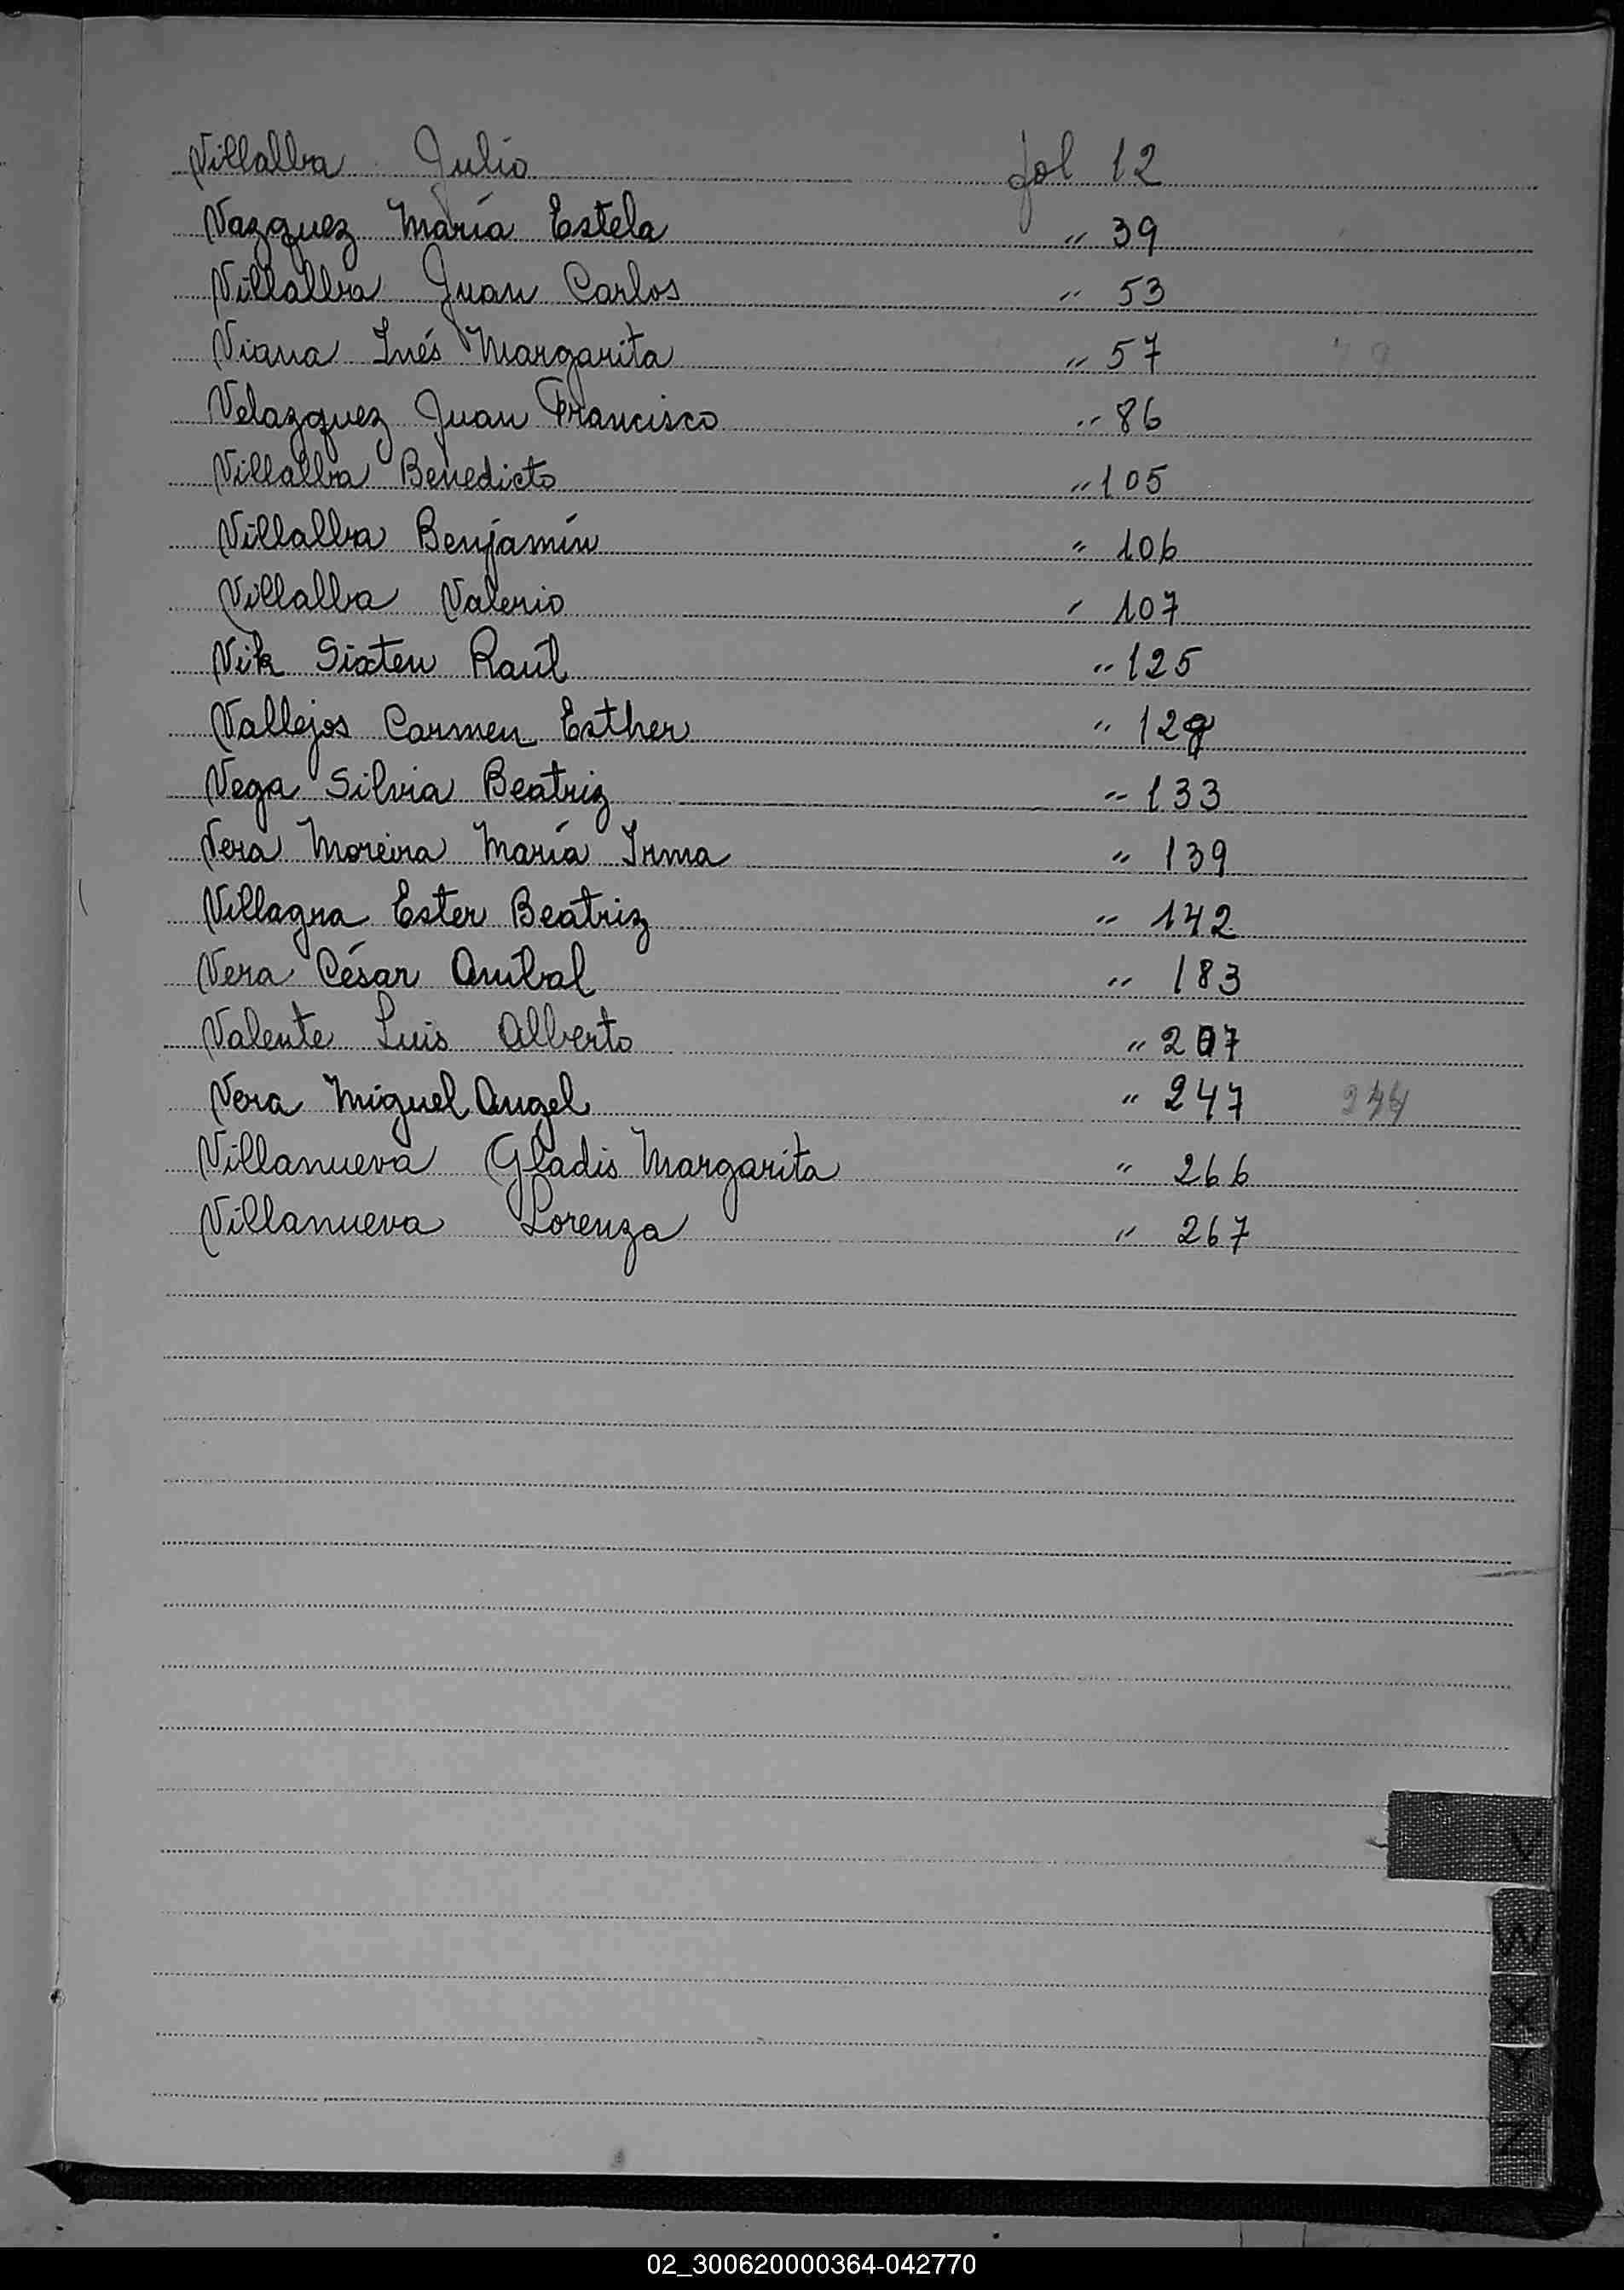 Villalba Julio fol 12
Vazquez María Estela " 39
Villalba Juan Carlos " 53
Viana Inés Margarita " 57
Velazquez Juan Francisco " 86
Villalba Benedicto " 105
Villalba Benjamín " 106
Villalba Valerio " 107
Vik Sixten Raúl " 125
Vallejos Carmen Esther " 129
Vega Silvia Beatriz " 133
Vera Moreira María Irma " 139
Villagra Ester Beatriz " 142
Vera César Anibal " 183
Valente Luis Alberto " 207
Vera Miguel Angel " 247
Villanueva Gladis Margarita " 266
Villanueva Lorenza " 267
V
W
X
Y
Z
02_300620000364-042770